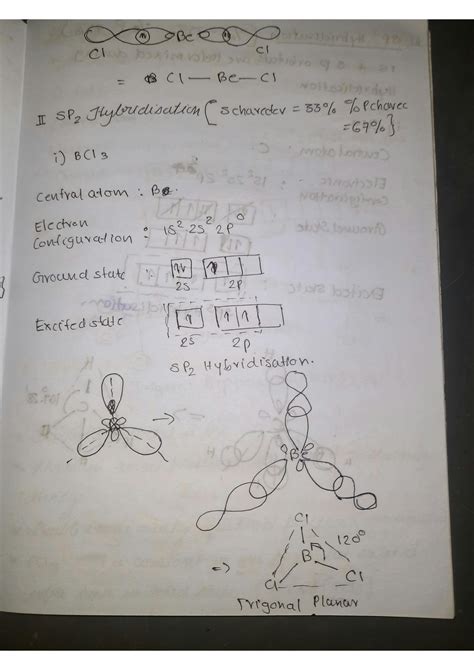 Be
Cl Cl
= Cl — Be — Cl
II SP2 Hybridisation { S charecter = 33% % P charec
= 67% }
i) BCl3
Central atom : Be.
Electron
Configuration : 1S² 2S² 2P⁰
Ground state : ↑↓ ↑
2S 2P
Excited state ↑ ↑ ↑
2S 2P
SP2 Hybridisation.
=>
B
Cl
120°
B
=> Cl Cl
Trigonal Planar